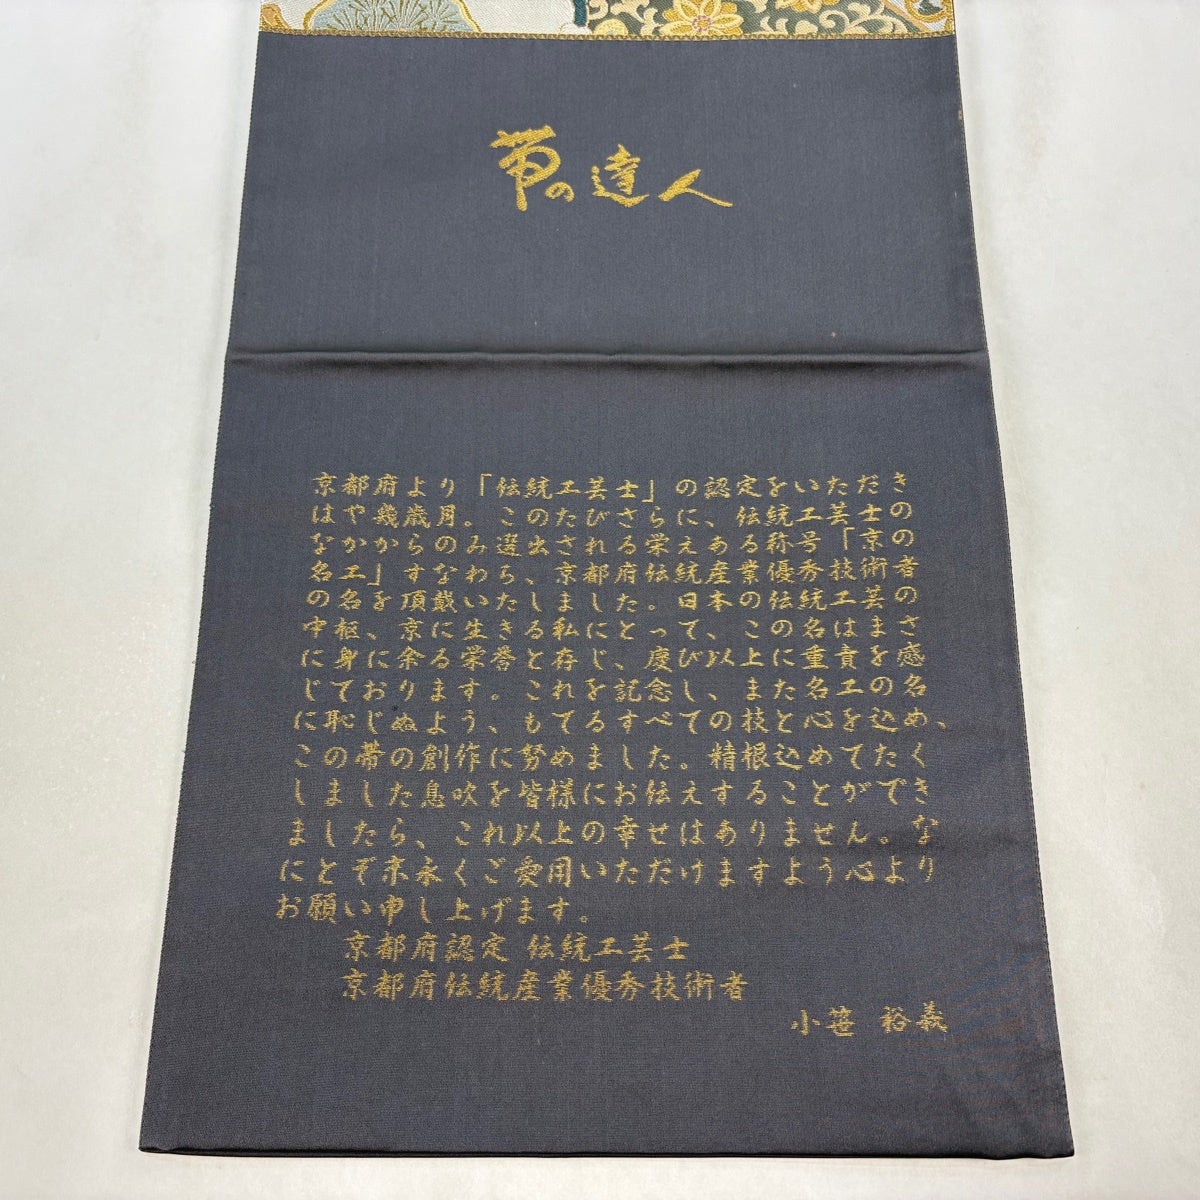 帯の達人
京都府より「伝統工芸士」の認定をいただき
はや幾歳月。このたびさらに、伝統工芸士の
なかからのみ選出される栄えある称号「京の
名工」すなわち、京都府伝統産業優秀技術者
の名を頂戴いたしました。日本の伝統工芸の
中枢、京に生きる私にとって、この名はまさ
に身に余る栄誉と存じ、慶び以上に重責を感
じております。これを記念し、また名工の名
に恥じぬよう、もてるすべての技と心を込め、
この帯の創作に努めました。精根込めてたく
しました息吹を皆様にお伝えすることができ
ましたら、これ以上の幸せはありません。な
にとぞ末永くご愛用いただけますよう心より
お願い申し上げます。
京都府認定 伝統工芸士
京都府伝統産業優秀技術者
小笹 裕義